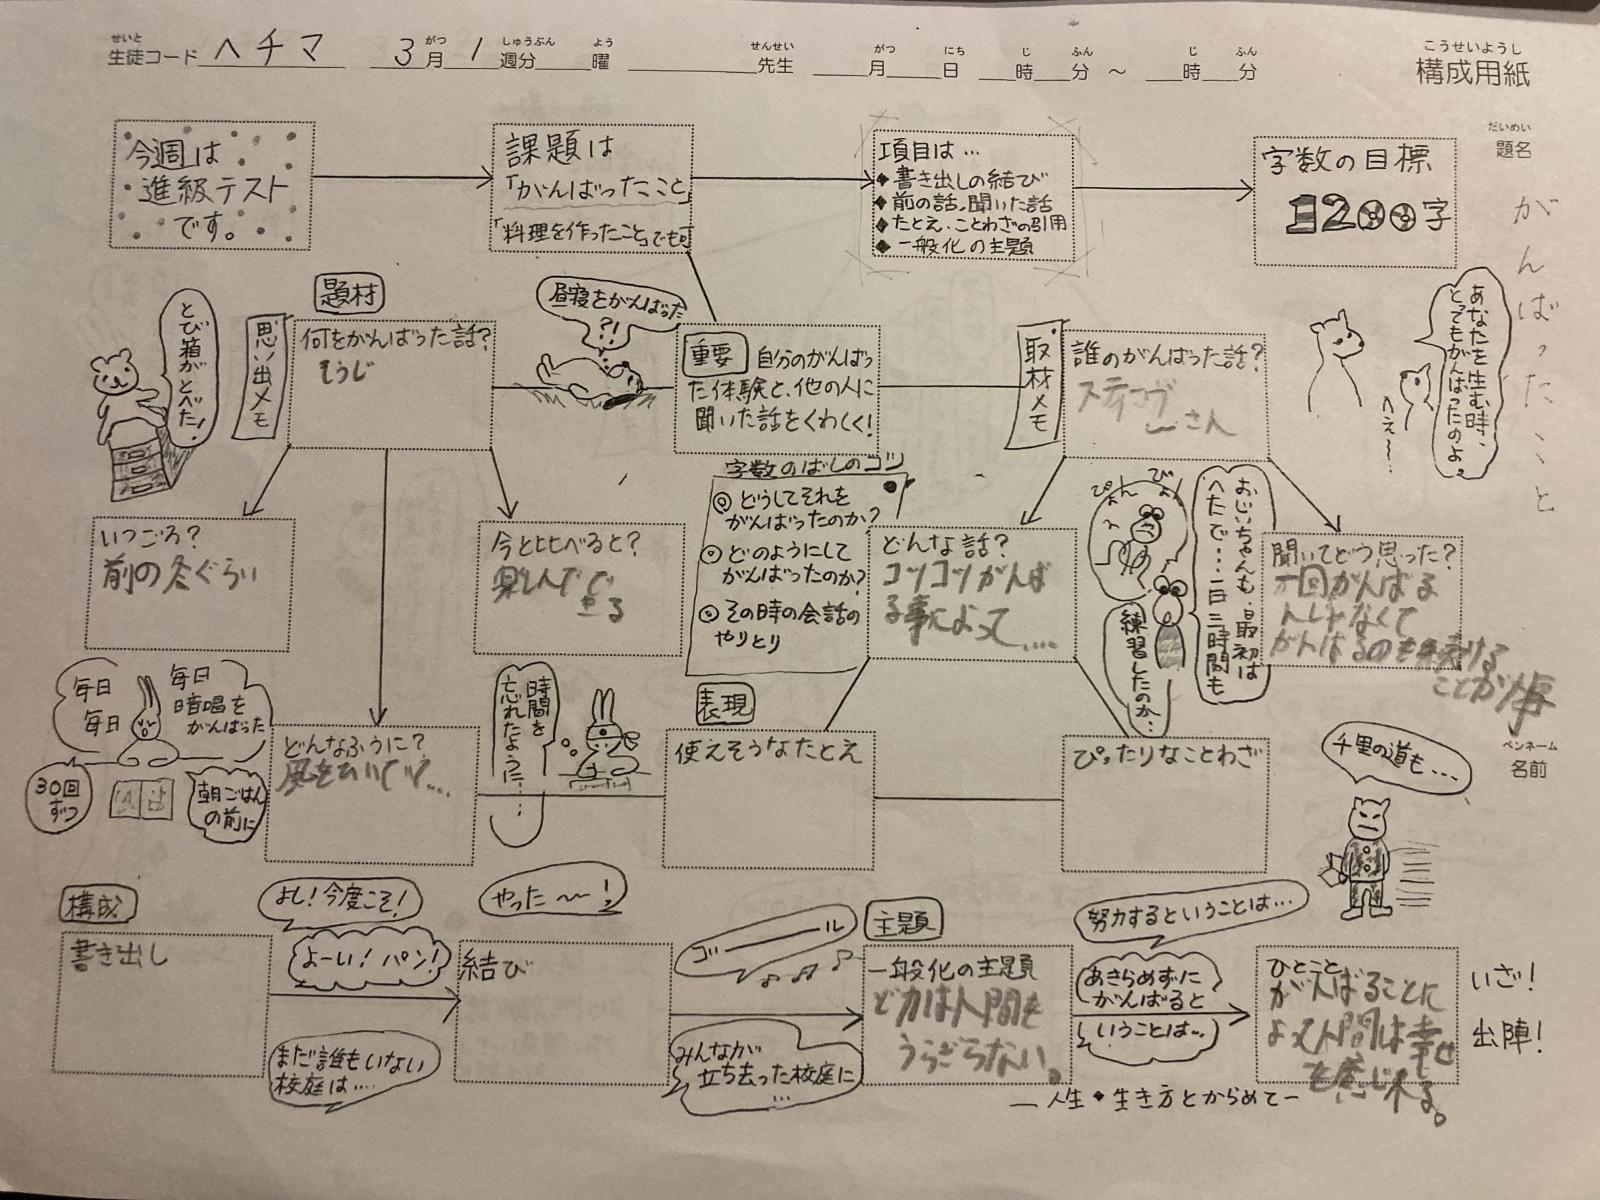 せいと
生徒コード ヘチマ 3月 1週分 曜 先生 月 日 時 分 ～ 時 分
がつ しゅうぶん よう せんせい がつ にち じ ふん じ ふん
こうせいようし
構成用紙
だいめい
題名
がんばったこと
今週は
進級テスト
です。
課題は
「がんばったこと」
「料理を作ったこと」でも可
項目は…
◆書き出しの結び
◆前の話、聞いた話
◆たとえ・ことわざの引用
◆一般化の主題
字数の目標
1200字
題材
思い出メモ
とび箱がとべた！
何をがんばった話？
そうじ
昼寝をがんばった
?!
重要 自分のがんばっ
た体験と、他の人に
聞いた話をくわしく！
取材メモ
誰のがんばった話？
さん
あなたを生む時、
とってもがんばったのよ。
へぇ～…
いつごろ？
前の冬ぐらい
今と比べると？
字数のばしのコツ
◎どうしてそれを
がんばったのか？
◎どのようにして
がんばったのか？
◎その時の会話の
やりとり
どんな話？
コツコツがんば
る事によって….
ぴょん
ぴょん
おじいちゃんも、最初は
へたで…一日三時間も
練習したのか…
聞いてどう思った？
がんばるのも続ける
ことが大事
毎日
毎日
毎日
暗唱を
がんばった
30回
ずつ
朝ごはん
の前に
どんなふうに？
時間を
忘れたように……
表現
使えそうなたとえ
ぴったりなことわざ
千里の道も…
ペンネーム
名前
構成
書き出し
よし！今度こそ！
よーい！パン！
まだ誰もいない
校庭は….
やった～～！
結び
ゴ――ル
みんなが
立ち去った校庭に
…
主題
一般化の主題
ど力は人間を
うらぎらない。
努力するということは…
あきらめずに
がんばると
いうことは…
ひとこと
がんばることに
よって人間は幸せ
を感じれる。
―人生・生き方とからめて－
いざ！
出陣！